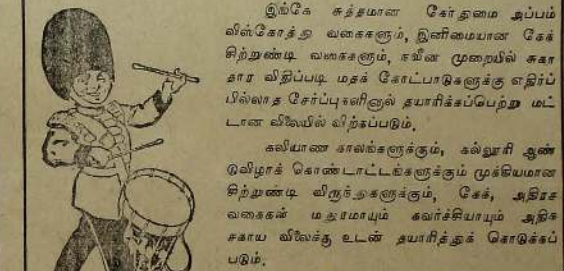 இங்கே சுத்தமான கோதுமை அப்பம்
விஸ்கோத்து வகைகளும், இனிமையான கேக்
சிற்றுண்டி வகைகளும், நவீன முறையில் சுகா
தார விதிப்படி மதக் கோட்பாடுகளுக்கு எதிர்ப்
பில்லாத சேர்ப்புகளினால் தயாரிக்கப்பெற்று மட்
டான விலையில் விற்கப்படும்.
கலியாண காலங்களுக்கும், கல்லூரி ஆண்
டுவிழாக் கொண்டாட்டங்களுக்கும் முக்கியமான
சிற்றுண்டி விருந்துகளுக்கும், கேக், அதிரச
வகைகள் மதுரமாயும் கவர்ச்சியாயும் அதிக
சகாய விலைக்கு உடன் தயாரித்துக் கொடுக்கப்
படும்.